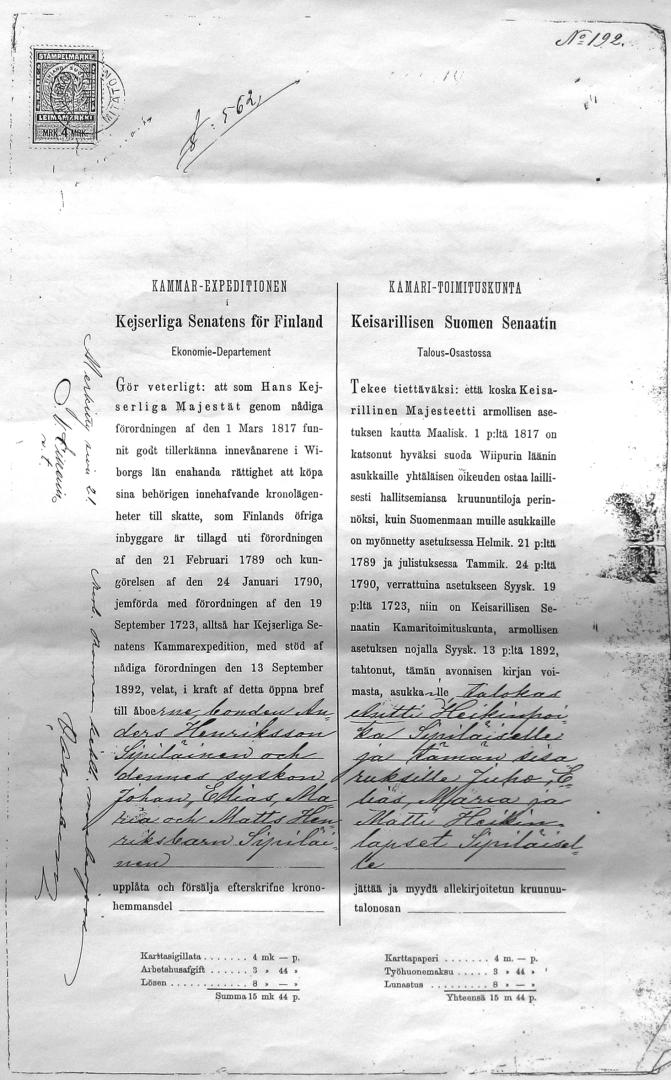 No 192.
STÄMPELMÄRKE
LEIMAMERKKI
MRK. 4 MRK.
562
KAMMAR-EXPEDITIONEN
i
Kejserliga Senatens för Finland
Ekonomie-Departement
Gör veterligt: att som Hans Kej-
serliga Majestät genom nådiga
förordningen af den 1 Mars 1817 fun-
nit godt tillerkänna innevånarene i Wi-
borgs län enahanda rättighet att köpa
sina behörigen innehafvande kronolägen-
heter till skatte, som Finlands öfriga
inbyggare är tillagd uti förordningen
af den 21 Februari 1789 och kun-
görelsen af den 24 Januari 1790,
jemförda med förordningen af den 19
September 1723, alltså har Kejserliga Se-
natens Kammarexpedition, med stöd af
nådiga förordningen den 13 September
1892, velat, i kraft af detta öppna bref
till åboerne bonden An-
ders Henriksson
Sipiläinen och
dennes syskon
Johan, Elias, Ma-
ria och Matts Hen-
riksbarn Sipiläi-
nen
upplåta och försälja efterskrifne krono-
hemmansdel
Karttasigillata . . . . . . . 4 mk — p.
Arbetshusafgift . . . . . . 3 „ 44 „
Lösen . . . . . . . . . . . . 8 „ — „
Summa 15 mk 44 p.
KAMARI-TOIMITUSKUNTA
Keisarillisen Suomen Senaatin
Talous-Osastossa
Tekee tiettäväksi: että koska Keisa-
rillinen Majesteetti armollisen ase-
tuksen kautta Maalisk. 1 p:ltä 1817 on
katsonut hyväksi suoda Wiipurin läänin
asukkaille yhtäläisen oikeuden ostaa lailli-
sesti hallitsemiansa kruununtiloja perin-
nöksi, kuin Suomenmaan muille asukkaille
on myönnetty asetuksessa Helmik. 21 p:ltä
1789 ja julistuksessa Tammik. 24 p:ltä
1790, verrattuina asetukseen Syysk. 19
p:ltä 1723, niin on Keisarillisen Se-
naatin Kamaritoimituskunta, armollisen
asetuksen nojalla Syysk. 13 p:ltä 1892,
tahtonut, tämän avonaisen kirjan voi-
masta, asukkaille Talokas
Antti Heikinpoi-
ka Sipiläiselle
ja tämän sisa
ruksille Juho, E-
lias, Maria ja
Matti Heikin-
lapset Sipiläisel-
le
jättää ja myydä allekirjoitetun kruunuu-
talonosan
Karttapaperi . . . . . . . . 4 m. — p.
Työhuonemaksu . . . . . 3 „ 44 „
Lunastus . . . . . . . . . . 8 „ — „
Yhteensä 15 m 44 p.